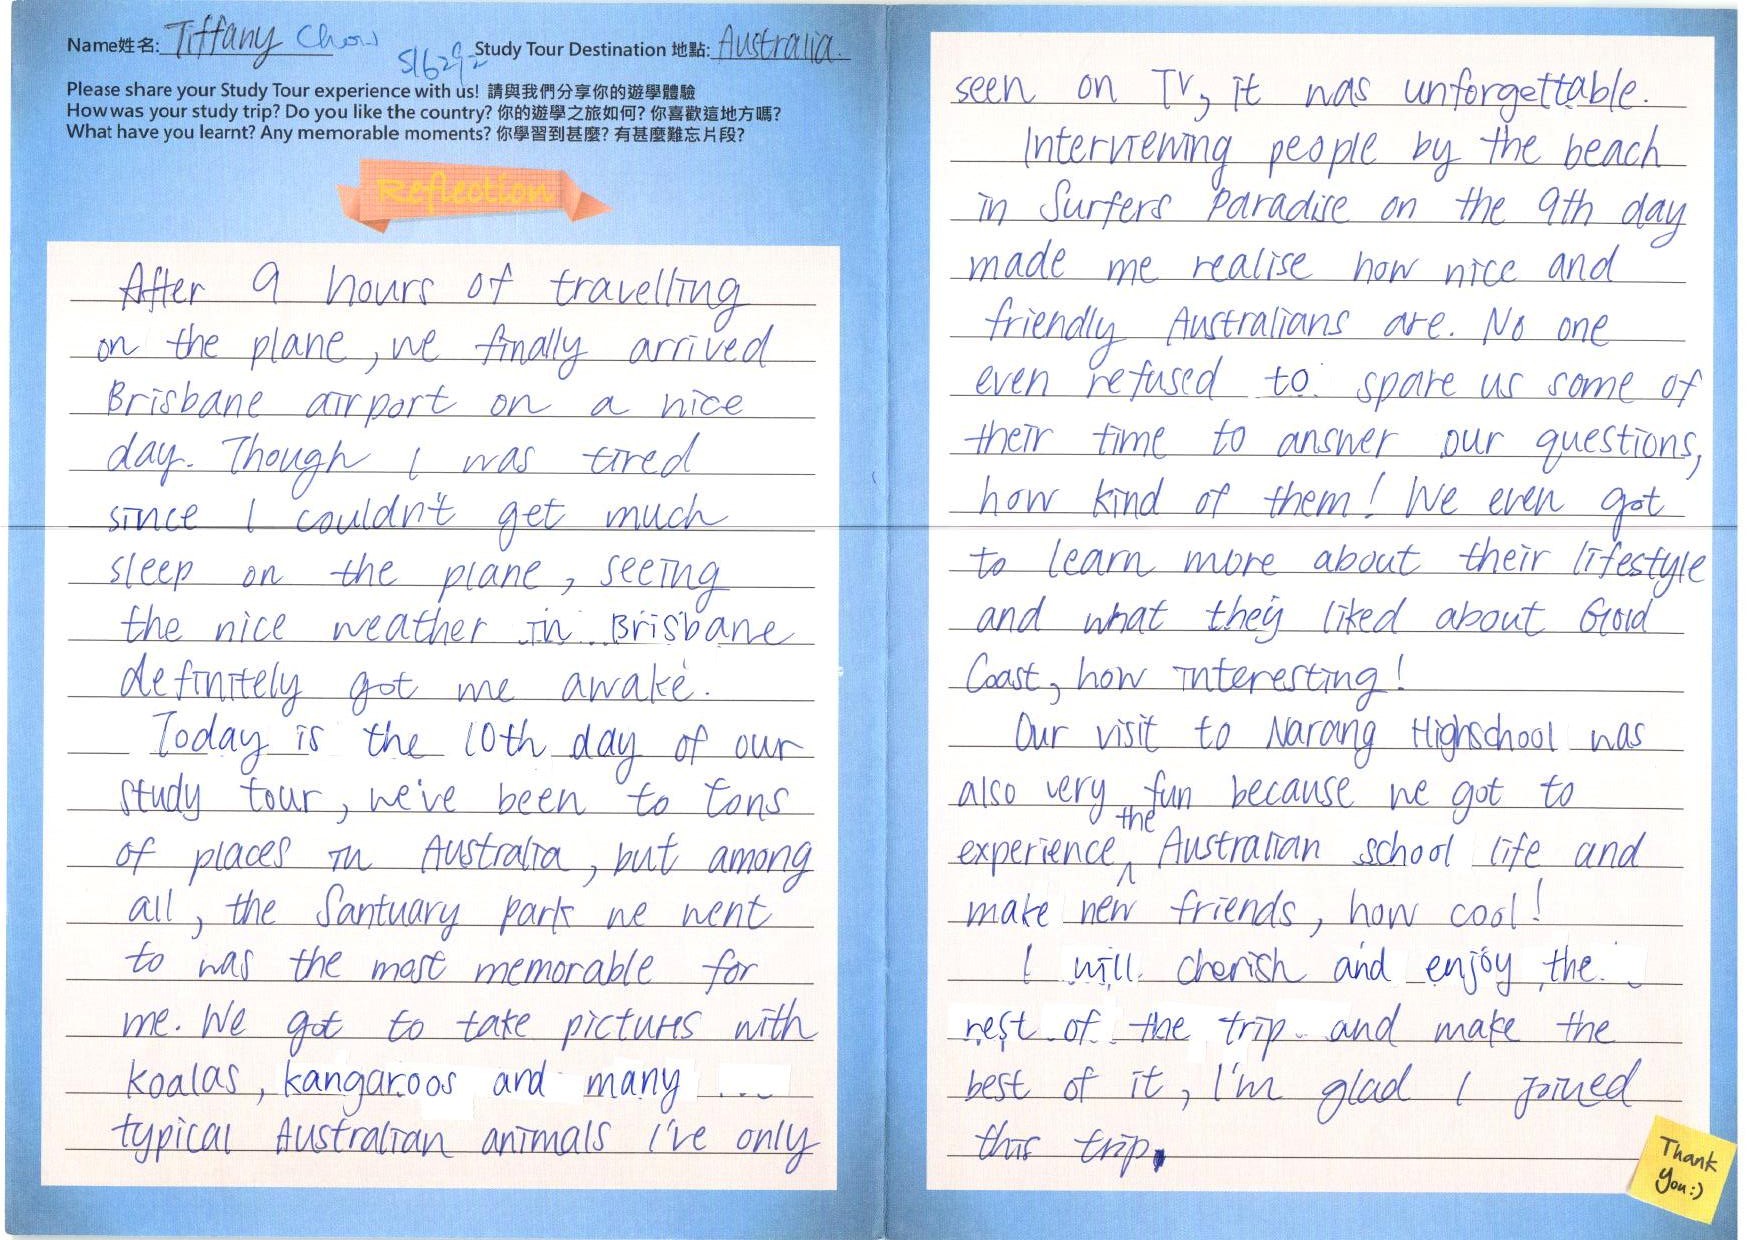 Name姓名: Tiffany Chow
S16292
Study Tour Destination 地點: Australia.
Please share your Study Tour experience with us! 請與我們分享你的遊學體驗
How was your study trip? Do you like the country? 你的遊學之旅如何? 你喜歡這地方嗎?
What have you learnt? Any memorable moments? 你學習到甚麼? 有甚麼難忘片段?
Reflection
After 9 hours of travelling
on the plane, we finally arrived
Brisbane airport on a nice
day. Though I was tired
since I couldn't get much
sleep on the plane, seeing
the nice weather in Brisbane
definitely got me awake.
Today is the 10th day of our
study tour, we've been to tons
of places in Australia, but among
all, the Santuary park we went
to was the most memorable for
me. We got to take pictures with
koalas, kangaroos and many ...
typical Australian animals I've only
seen on TV, it was unforgettable.
Interviewing people by the beach
in Surfers Paradise on the 9th day
made me realise how nice and
friendly Australians are. No one
even refused to spare us some of
their time to answer our questions,
how kind of them! We even got
to learn more about their lifestyle
and what they liked about Gold
Coast, how interesting!
Our visit to Narang Highschool was
also very fun because we got to
experience the Australian school life and
make new friends, how cool!
I will cherish and enjoy the
rest of the trip and make the
best of it, I'm glad I joined
this trip.
Thank
You:)